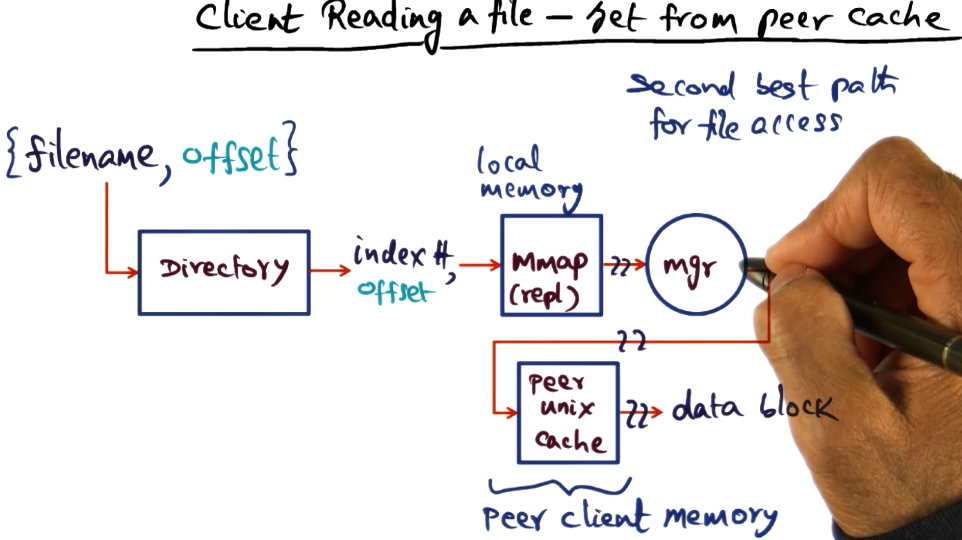 Client Reading a file – Get from peer cache
second best path
for file access
{filename, offset}
local
memory
Directory
index #,
offset
Mmap
(repl)
mgr
peer
unix
cache
data block
peer client memory